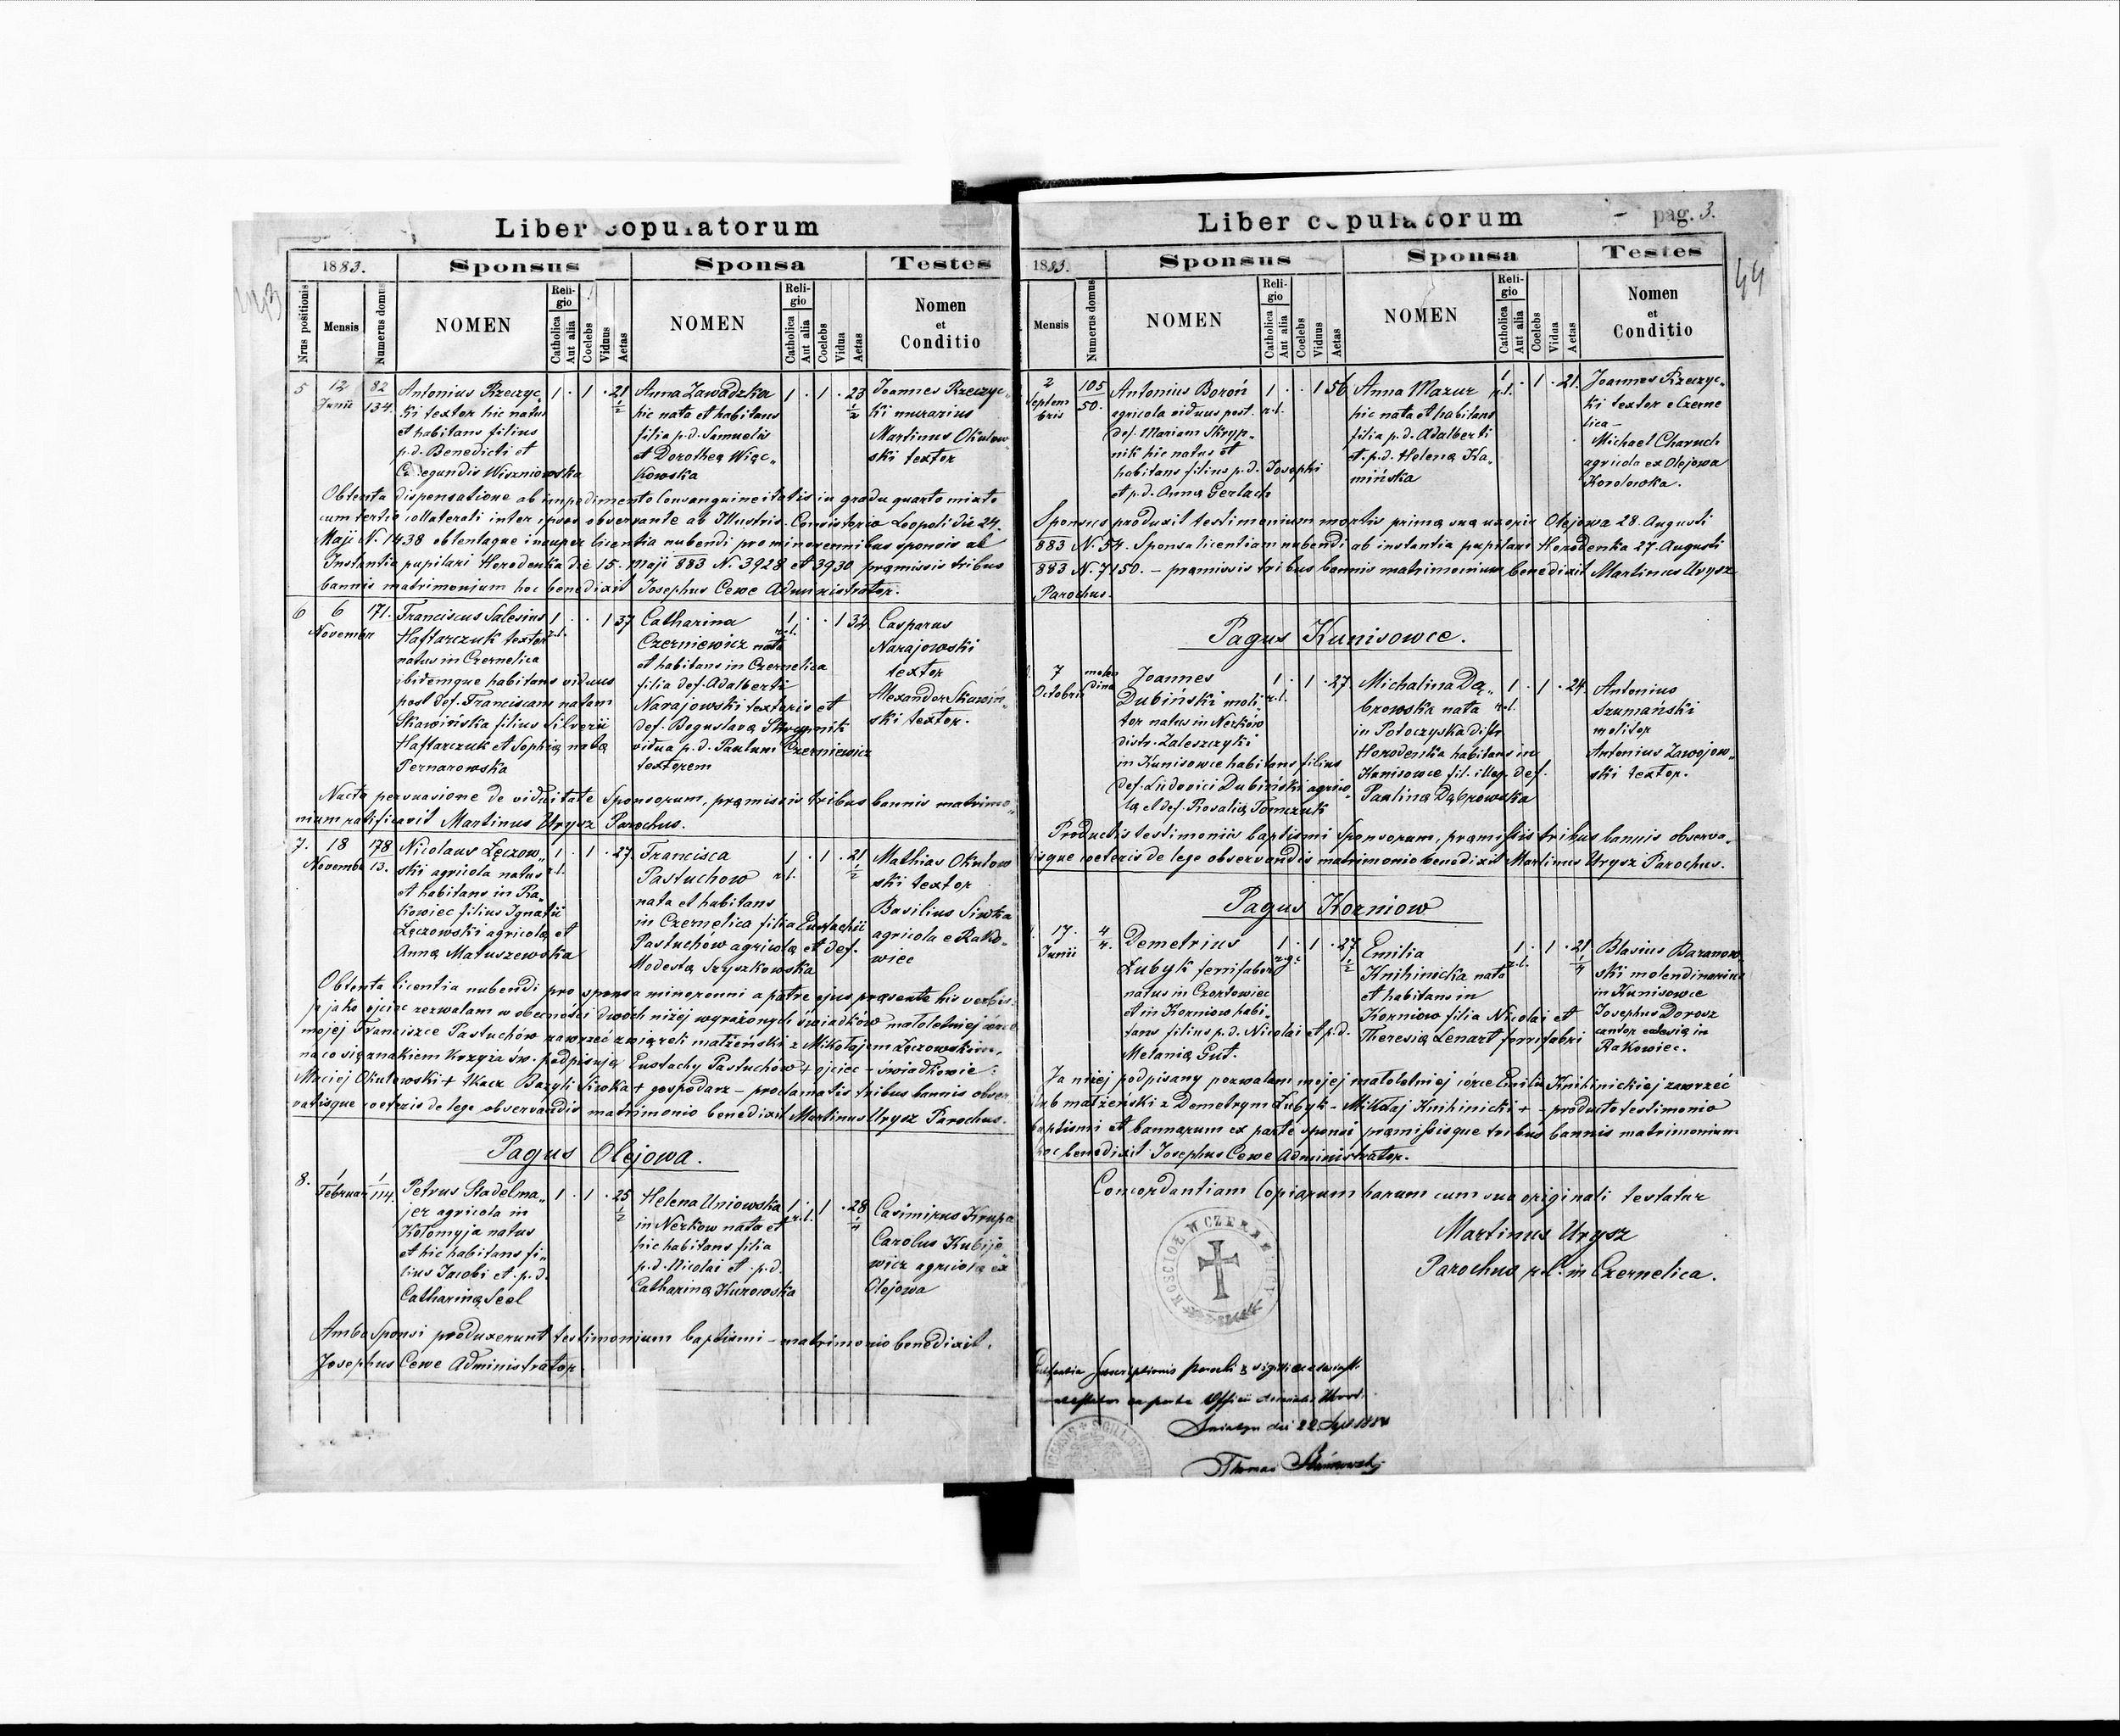 Liber copulatorum
1883.
Sponsus
Sponsa
Testes
Nrus positionis
Mensis
Numerus domus
NOMEN
Religio
Catholica
Aut alia
Coelebs
Viduus
Aetas
NOMEN
Religio
Catholica
Aut alia
Coelebs
Vidua
Aetas
Nomen
et
Conditio
5
12
Junii
82
134.
Antonius Rzeczyc„
ki textor hic natus
et habitans filius
p.d. Benedicti et
Wiszniowska
1 . 1 . 21 1/2
Anna Zawadzka
hic nata et habitans
filia p.d. Samuelis
et Dorothea Więc„
kowska
1 . 1 . 23 1/2
Joannes Rzeczyc„
ki murarius
Martinus Okulow„
ski textor
Obtenta dispensatione ab impedimento Consanguineitatis in gradu quarto mixto
cum tertio collaterali inter ipsos observante ab Illustris. Consistorio Leopoli die 24.
Maji N. 1438 obtentaque insuper licentia nubendi pro minorennibus sponsis ab
Instantia pupilari Horodenka de 15. Maji 883 N. 3928 et 3930 præmissis tribus
bannis matrimonium hoc benedixit Josephus Cewe Administrator.
6
6
Novembr
171.
Franciscus Salesius
Haftarczuk textor
natus in Czernelica
ibidemque habitans viduus
post def. Franciscam natam
Skawińska filius Silverii
Haftarczuk et Sophia nata
Pernarowska
1 r.l. . . 1 37
Catharina
Czerniewicz nata
et habitans in Czernelica
filia def. Adalberti
Narajowski textoris et
def. Boguslava Skrypnik
vidua p.d. Paulum Czerniewicz
textorem
1 r.l. . . 1 32.
Casparus
Narajowski
textor
Alexander Skawiń„
ski textor.
Nacta persuasione de viduitate Sponsorum, præmissis tribus bannis matrimo„
nium ratificavit Martinus Urysz Parochus.
7.
18
Novemb
178
13.
Nicolaus Łęczow„
ski agricola natus
et habitans in Ra„
kowiec filius Ignatii
Łęczowski agricola et
Anna Matuszewska
1 r.l. . 1 . 27.
Francisca
Pastuchow
nata et habitans
in Czernelica filia Eustachii
Pastuchów agricola et def.
Modesta Szyszkowska
1 r.l. . 1 . 21 1/2
Mathias Okulow
ski textor
Basilius Siwka
agricola e Rako„
wiec
Obtenta licentia nubendi pro sponsa minorenni a patre ejus præsente his verbis:
ja jako ojciec zezwalam w obecności dwoch niżej wyrażonych świadków małoletniej córce
mojej Franciszce Pastuchów zawrzeć związek małżeński z Mikołajem Łęczowskim,
na co się znakiem krzyża św. podpisuję Eustachy Pastuchów + ojciec – świadkowie:
Maciej Okulowski + tkacz Bazyli Siwka + gospodarz – proclamatis tribus bannis obser„
vatisque coeteris de lege observandis matrimonio benedixit Martinus Urysz Parochus.
Pagus Olejowa.
8.
1
Februar
1
114.
Petrus Stadelma„
jer agricola in
Kołomyja natus
et hic habitans fi„
lius Jacobi et p.d.
Catharina Seel
1 . 1 . 25 1/2
Helena Uniowska
in Nerkow nata et
hic habitans filia
p.d. Nicolai et p.d.
Catharina Kurowska
1 r.l. . 1 . 28 1/4
Casimirus Krupa
Carolus Kubije„
wicz agricola ex
Olejowa
Ambo Sponsi produxerunt testimonium baptismi – matrimonio benedixit.
Josephus Cewe Administrator.
Liber copulatorum
pag. 3.
44
1883.
Sponsus
Sponsa
Testes
Mensis
Numerus domus
NOMEN
Religio
Catholica
Aut alia
Coelebs
Viduus
Aetas
NOMEN
Religio
Catholica
Aut alia
Coelebs
Vidua
Aetas
Nomen
et
Conditio
2
Septem
bris
105
50.
Antonius Boroń
agricola viduus post.
def. Mariam Skryp„
nik hic natus et
habitans filius p.d. Josephi
et p.d. Anna Gerlach
1 r.l. . . 1 56
Anna Mazur
hic nata et habitans
filia p.d. Adalberti
et p.d. Helena Ka„
mińska
1 r.l. . 1 . 21.
Joannes Rzeczyc„
ki textor e Czerne
lica –
Michael Charuch
agricola ex Olejowa
Korolowka.
Sponsus produxit testimonium mortis prima sua uxoris Olejowa 28. Augusti
883 N. 54. Sponsa licentiam nubendi ab instantia pupilari Horodenka 27. Augusti
883 N. 7150. – præmissis tribus bannis matrimonium benedixit Martinus Urysz
Parochus.
Pagus Kunisowce.
7
Octobris
molen
dina
Joannes
Dubiński moli„
tor natus in Nerków
distr. Zaleszczyki
in Kunisowce habitans filius
def. Ludovici Dubiński agrico„
la et def. Rosalia Tomczuk
1 r.l. . 1 . 27.
Michalina Dą„
browska nata
in Potoczyska distr
Horodenka habitans in
Kunisowce fil. illeg. def.
Paulina Dąbrowska
1 r.l. . 1 . 24.
Antonius
Szumański
molitor
Antonius Zawojow„
ski textor.
Productis testimoniis baptismi Sponsorum, præmissis tribus bannis observa„
tisque coeteris de lege observandis matrimonio benedixit Martinus Urysz Parochus.
Pagus Korniow
17.
Junii
4
4.
Demetrius
Łubyk ferrifaber
natus in Czortowiec
et in Korniow habi„
tans filius p.d. Nicolai et p.d.
Melania Gut.
1 r.gr. . 1 . 27 1/2
Emilia
Knihinicka nata
et habitans in
Korniow filia Nicolai et
Theresia Lenart ferrifabri
1 r.l. . 1 . 21 1/4
Blasius Baranow„
ski molendinarius
in Kunisowce
Josephus Dorosz
cantor ecclesia in
Rakowiec.
Ja niżej podpisany pozwalam mojej małoletniej córce Emilii Knihinickiej zawrzeć
ślub małżeński z Demetrym Łubyk – Mikołaj Knihinicki + – producto testimonio
baptismi et bannorum ex parte sponsi præmissisque tribus bannis matrimonium
hoc benedixit Josephus Cewe Administrator.
Concordantiam Copiarum harum cum suo originali testatur
Martinus Urysz
Parochus r.l. in Czernelica.
KOSCIOŁ W CZERNELICY
Sniatyn die 22. Sept 1884
Thomas